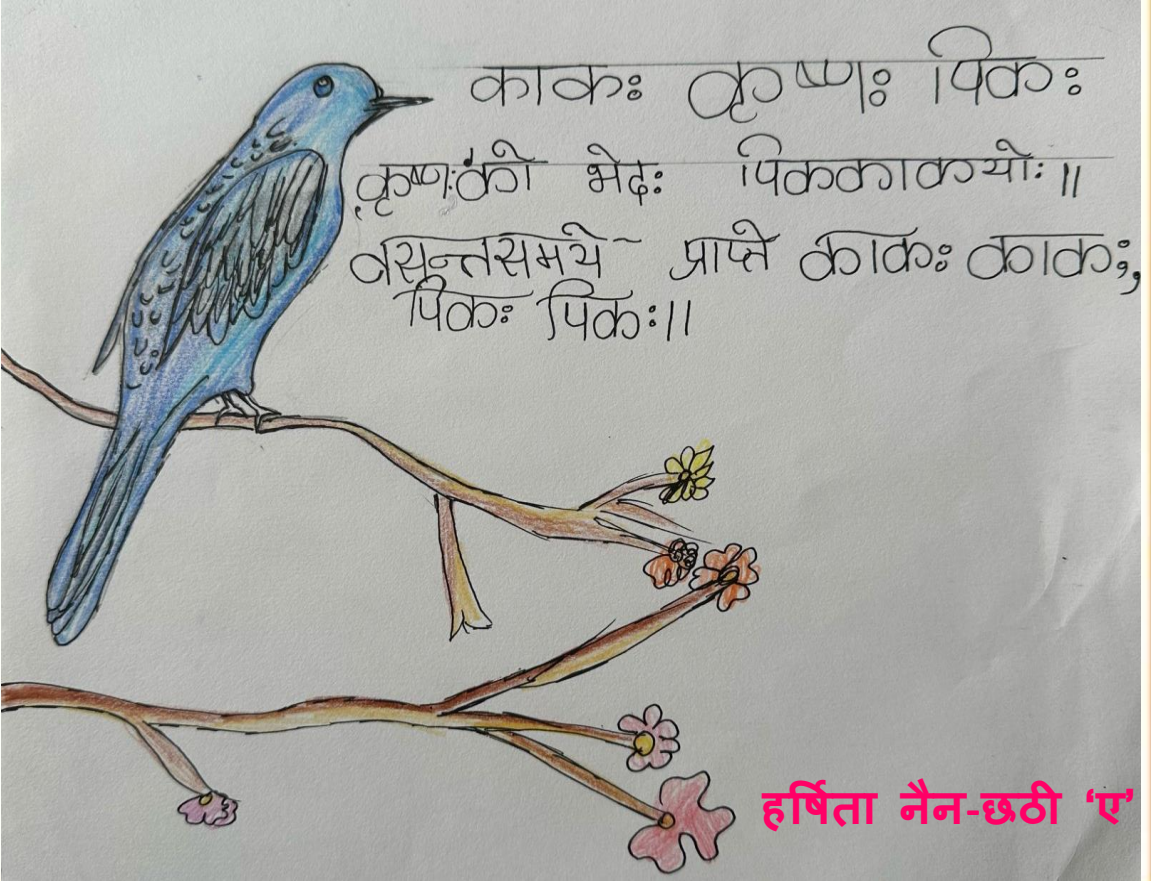 काकः कृष्णः पिकः
कृष्णः को भेदः पिककाकयोः॥
वसन्तसमये प्राप्ते काकः काकः,
पिकः पिकः॥
हर्षिता नैन-छठी ‘ए’